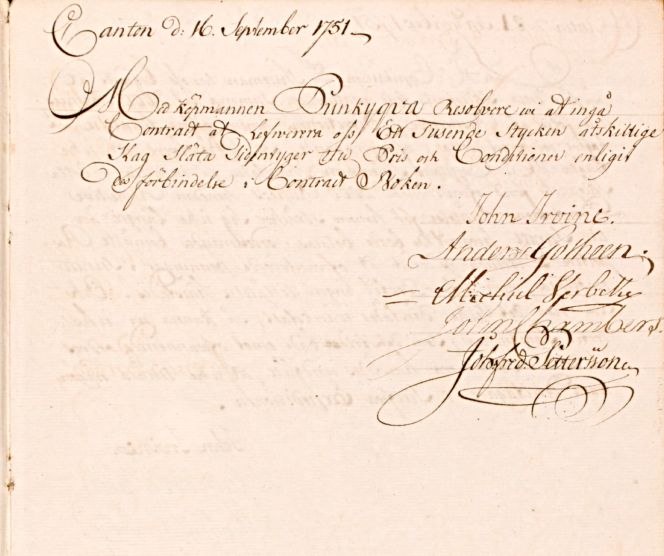 Canton d: 16. September 1751.
Med köpmannen Punkyqva Resolvere wi at ingå
Contract at lefwerera oss Ett Tusende Stycken åtskillige
Slag Släta Sidentyger till Pris och Conditioner enligit
des förbindelse i Contract Boken.
John Irvine.
Anders Gotheen.
Michiel
John Chambers.
Joh. Fred. Pettersson